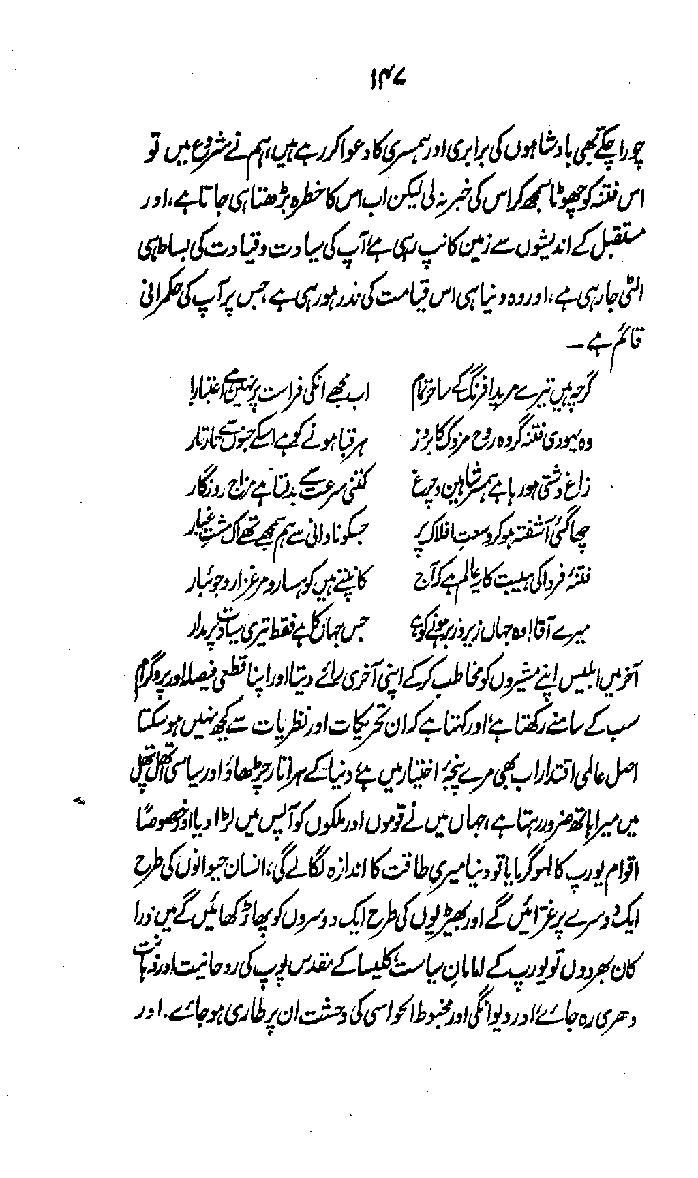 ۱۴۷
چور اچکے بھی بادشاہوں کی برابری اور ہمسری کا دعوا کر رہے ہیں، ہم نے شروع میں تو
اس فتنہ کو چھوٹا سمجھ کر اس کی خبر نہ لی لیکن اب اس کا خطرہ بڑھتا ہی جاتا ہے، اور
مستقبل کے اندیشوں سے زمین کانپ رہی ہے آپ کی سیادت و قیادت کی بساط ہی
الٹی جا رہی ہے، اور وہ دنیا ہی اس قیامت کی نذر ہو رہی ہے، جس پر آپ کی حکمرانی
قائم ہے ـ
گرچہ ہیں تیرے مرید افرنگ کے ساحر تمام اب مجھے انکی فراست پر نہیں ہے اعتبار
وہ یہودی فتنہ گر وہ روح مزدک کا بروز ہر قبا ہونے کو ہے اسکے جنوں سے تار تار
زاغ دشتی ہو رہا ہے ہمسر شاہین و چرغ کتنی سرعت سے بدلتا ہے مزاج روزگار
چھا گئی آشفتہ ہو کر وسعت افلاک پر جسکو نادانی سے ہم سمجھے تھے اک مشت غبار
فتنۂ فردا کی ہیبت کا یہ عالم ہے کہ آج کانپتے ہیں کوہسار و مرغزار و جوئبار
میرے آقا! وہ جہاں زیر و زبر ہونے کو ہے جس جہاں کا ہے فقط تیری سیادت پر مدار
آخر میں ابلیس اپنے مشیروں کو مخاطب کر کے اپنی آخری رائے دیتا اور اپنا قطعی فیصلہ اور پروگرام
سب کے سامنے رکھتا ہے اور کہتا ہے کہ ان تحریکات اور نظریات سے کچھ نہیں ہو سکتا
اصل عالمی اقتدار اب بھی مرے پنجۂ اختیار میں ہے دنیا کے ہر اتار چڑھاؤ اور سیاسی اتھل پتھل
میں میرا ہاتھ ضرور رہتا ہے، جہاں میں نے قوموں اور ملکوں کو آپس میں لڑا دیا اور خصوصاً
اقوام یورپ کا لہو گرمایا تو دنیا میری طاقت کا اندازہ لگا لے گی، انسان حیوانوں کی طرح
ایک دوسرے پر غرائیں گے اور بھیڑیوں کی طرح ایک دوسروں کو پھاڑ کھائیں گے میں ذرا
کان بھر دوں تو یورپ کے امامان سیاست کلیسا کے مقدس پوپ کی روحانیت اور ذہانت
دھری رہ جائے اور دیوانگی اور مخبوط الحواسی کی دہشت ان پر طاری ہو جائے. اور